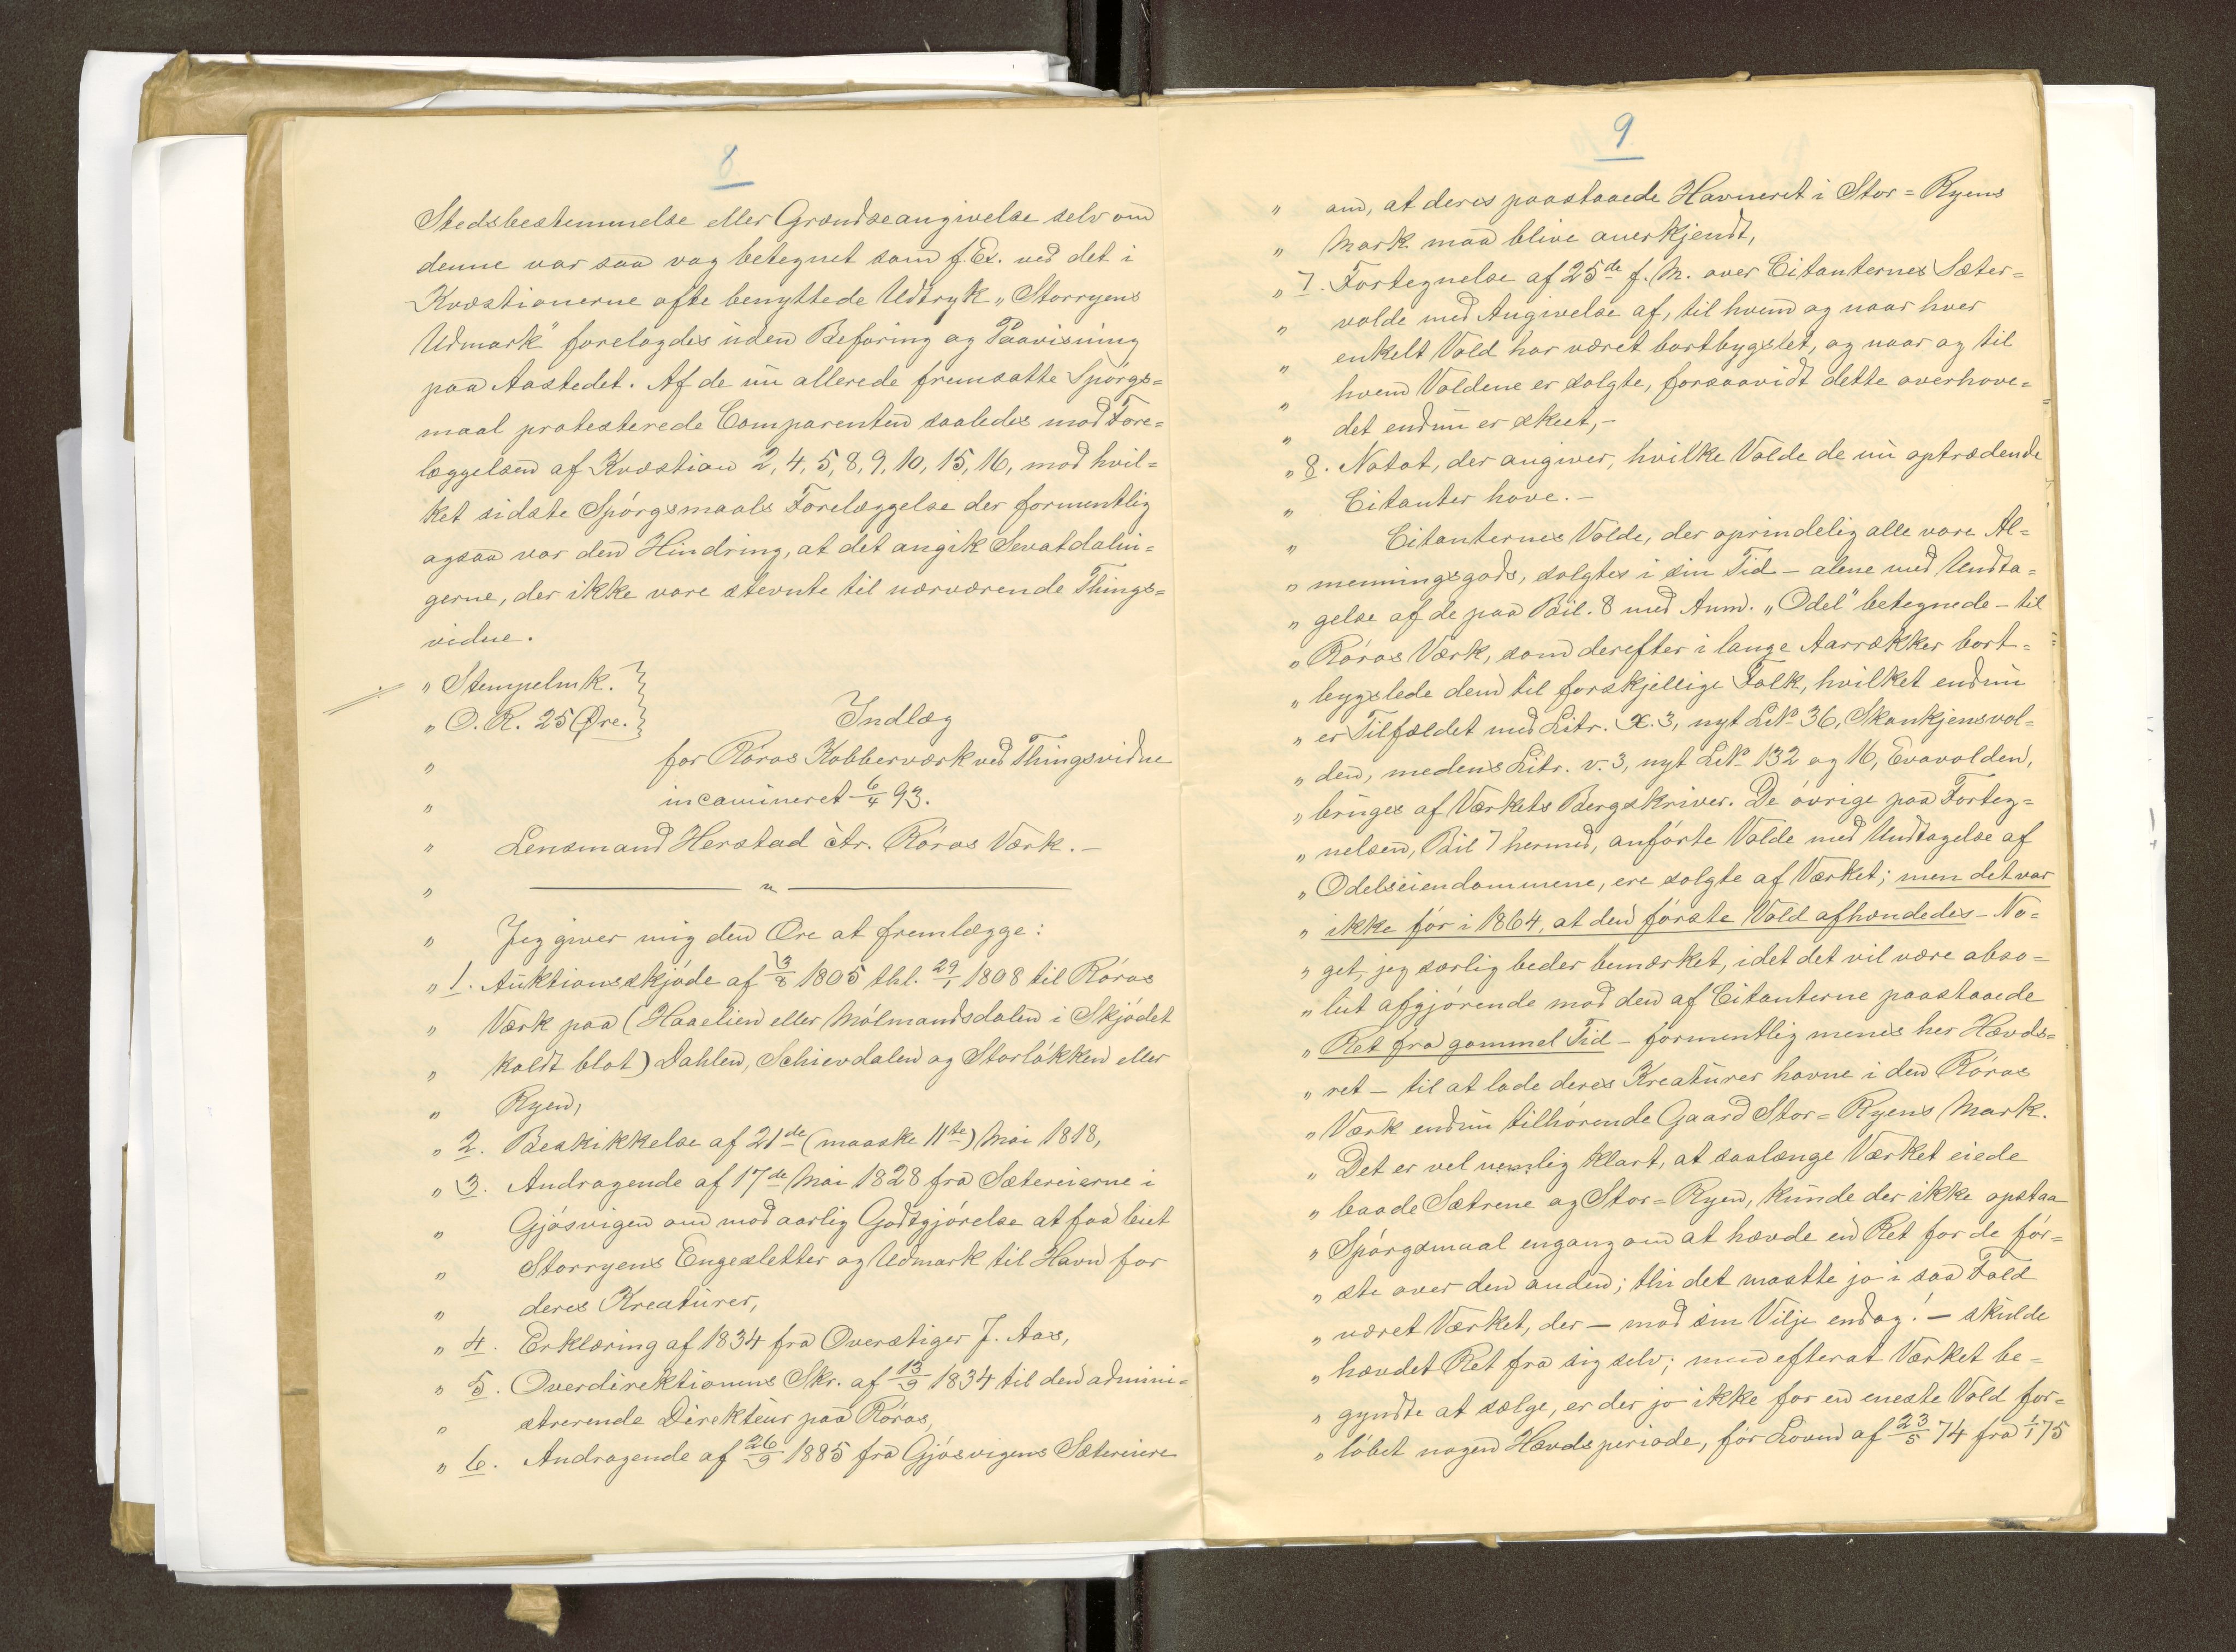 8
Stedsbestemmelse eller Grændseangivelse selv om
denne var saa vag betegnet som f. Ex. ved det i
Kvæstionerne ofte benyttede Udtryk „Storryens
Udmark" forelagdes uden Befaring og Paavisning
paa Aastedet. Af de nu allerede fremsatte Spørgs=
maal protesterede Comparenten saaledes mod Fore=
læggelsen af Kvæstion 2, 4, 5, 8, 9, 10, 15, 16, mod hvil=
ket sidste Spørgsmaals Forelæggelse der formentlig
ogsaa var den Hindring, at det angik Sevatdalin=
gerne, der ikke vare stevnte til nærværende Things=
vidne.
„ Stempelmk.
„ O. R. 25 Øre. Indlæg
„ for Røros Kobberværk ved Thingsvidne
„ incamineret 6/4 93.
„ Lensmand Herstad ctr. Røros Værk. —
„
„ Jeg giver mig den Ære at fremlægge:
„ 1. Auktionsskjøde af 3/8 1805 thl. 29/1 1808 til Røros
„ Værk paa (Haaelien eller Mølmandsdalen i Skjødet
„ kaldt blot) Dahlen, Schievdalen og Storløkken eller
„ Ryen,
„ 2. Beskikkelse af 21de (maaske 11te) Mai 1818,
„ 3. Andragende af 17de Mai 1828 fra Sætereierne i
„ Gjøsvigen om mod aarlig Godtgjørelse at faa leiet
„ Storryens Engesletter og Udmark til Havn for
„ deres Kreaturer,
„ 4. Erklæring af 1834 fra Overstiger J. Aas,
„ 5. Overdirektionens Skr. af 13/9 1834 til den admini=
„ strerende Direkteur paa Røros,
„ 6. Andragende af 26/9 1885 fra Gjøsvigens Sætereiere
9
„ om, at deres paastaaede Havneret i Stor=Ryens
„ Mark maa blive anerkjendt,
„ 7. Fortegnelse af 25de f. M. over Citanternes Sæter=
„ volde med Angivelse af, til hvem og naar hver
„ enkelt Vold har været bortbygslet, og naar og til
„ hvem Voldene er solgte, forsaavidt dette overhove=
„ det endnu er skeet, —
„ 8. Notat, der angiver, hvilke Volde de nu optrædende
„ Citanter have. —
„ Citanternes Volde, der oprindelig alle vare Al=
„ menningsgods, solgtes i sin Tid — alene med Undta=
„ gelse af de paa Bil. 8 med Anm. „Odel" betegnede — til
„ Røros Værk, som derefter i lange Aarrækker bort=
„ bygslede dem til forskjellige Folk, hvilket endnu
„ er Tilfældet med Litr. X. 3, nyt LNo 36, Skankjensvol=
„ den, medens Litr. v. 3, nyt LNo 132 og 16, Evavolden,
„ bruges af Værkets Bergskriver. De øvrige paa Forteg=
„ nelsen, Bil 7 hermed, anførte Volde med Undtagelse af
„ Odelseiendommene, ere solgte af Værket; men det var
„ ikke før i 1864, at den første Vold afhændedes — No=
„ get, jeg særlig beder bemærket, idet det vil være abso=
„ lut afgjørende mod den af Citanterne paastaaede
„ Ret fra gammel Tid — formentlig menes her Hævds=
„ ret — til at lade deres Kreaturer havne i den Røros
„ Værk endnu tilhørende Gaard Stor=Ryens Mark.
„ Det er vel nemlig klart, at saalænge Værket eiede
„ baade Sætrene og Stor=Ryen, kunde der ikke opstaa
„ Spørgsmaal engang om at hævde en Ret for de før=
„ ste over den anden; thi det maatte jo i saa Fald
„ været Værket, der — mod sin Vilje endog! — skulde
„ hævdet Ret fra sig selv; men efterat Værket be=
„ gyndte at sælge, er der jo ikke for en eneste Vold for=
„ løbet nogen Hævdsperiode, før Loven af 23/5 74 fra 1/1 75